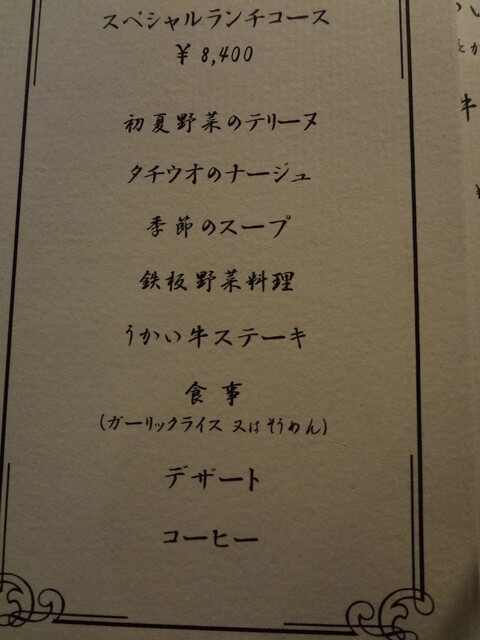 スペシャルランチコース
¥ 8,400
初夏野菜のテリーヌ
タチウオのナージュ
季節のスープ
鉄板野菜料理
うかい牛ステーキ
食事
(ガーリックライス 又は そうめん)
デザート
コーヒー
牛